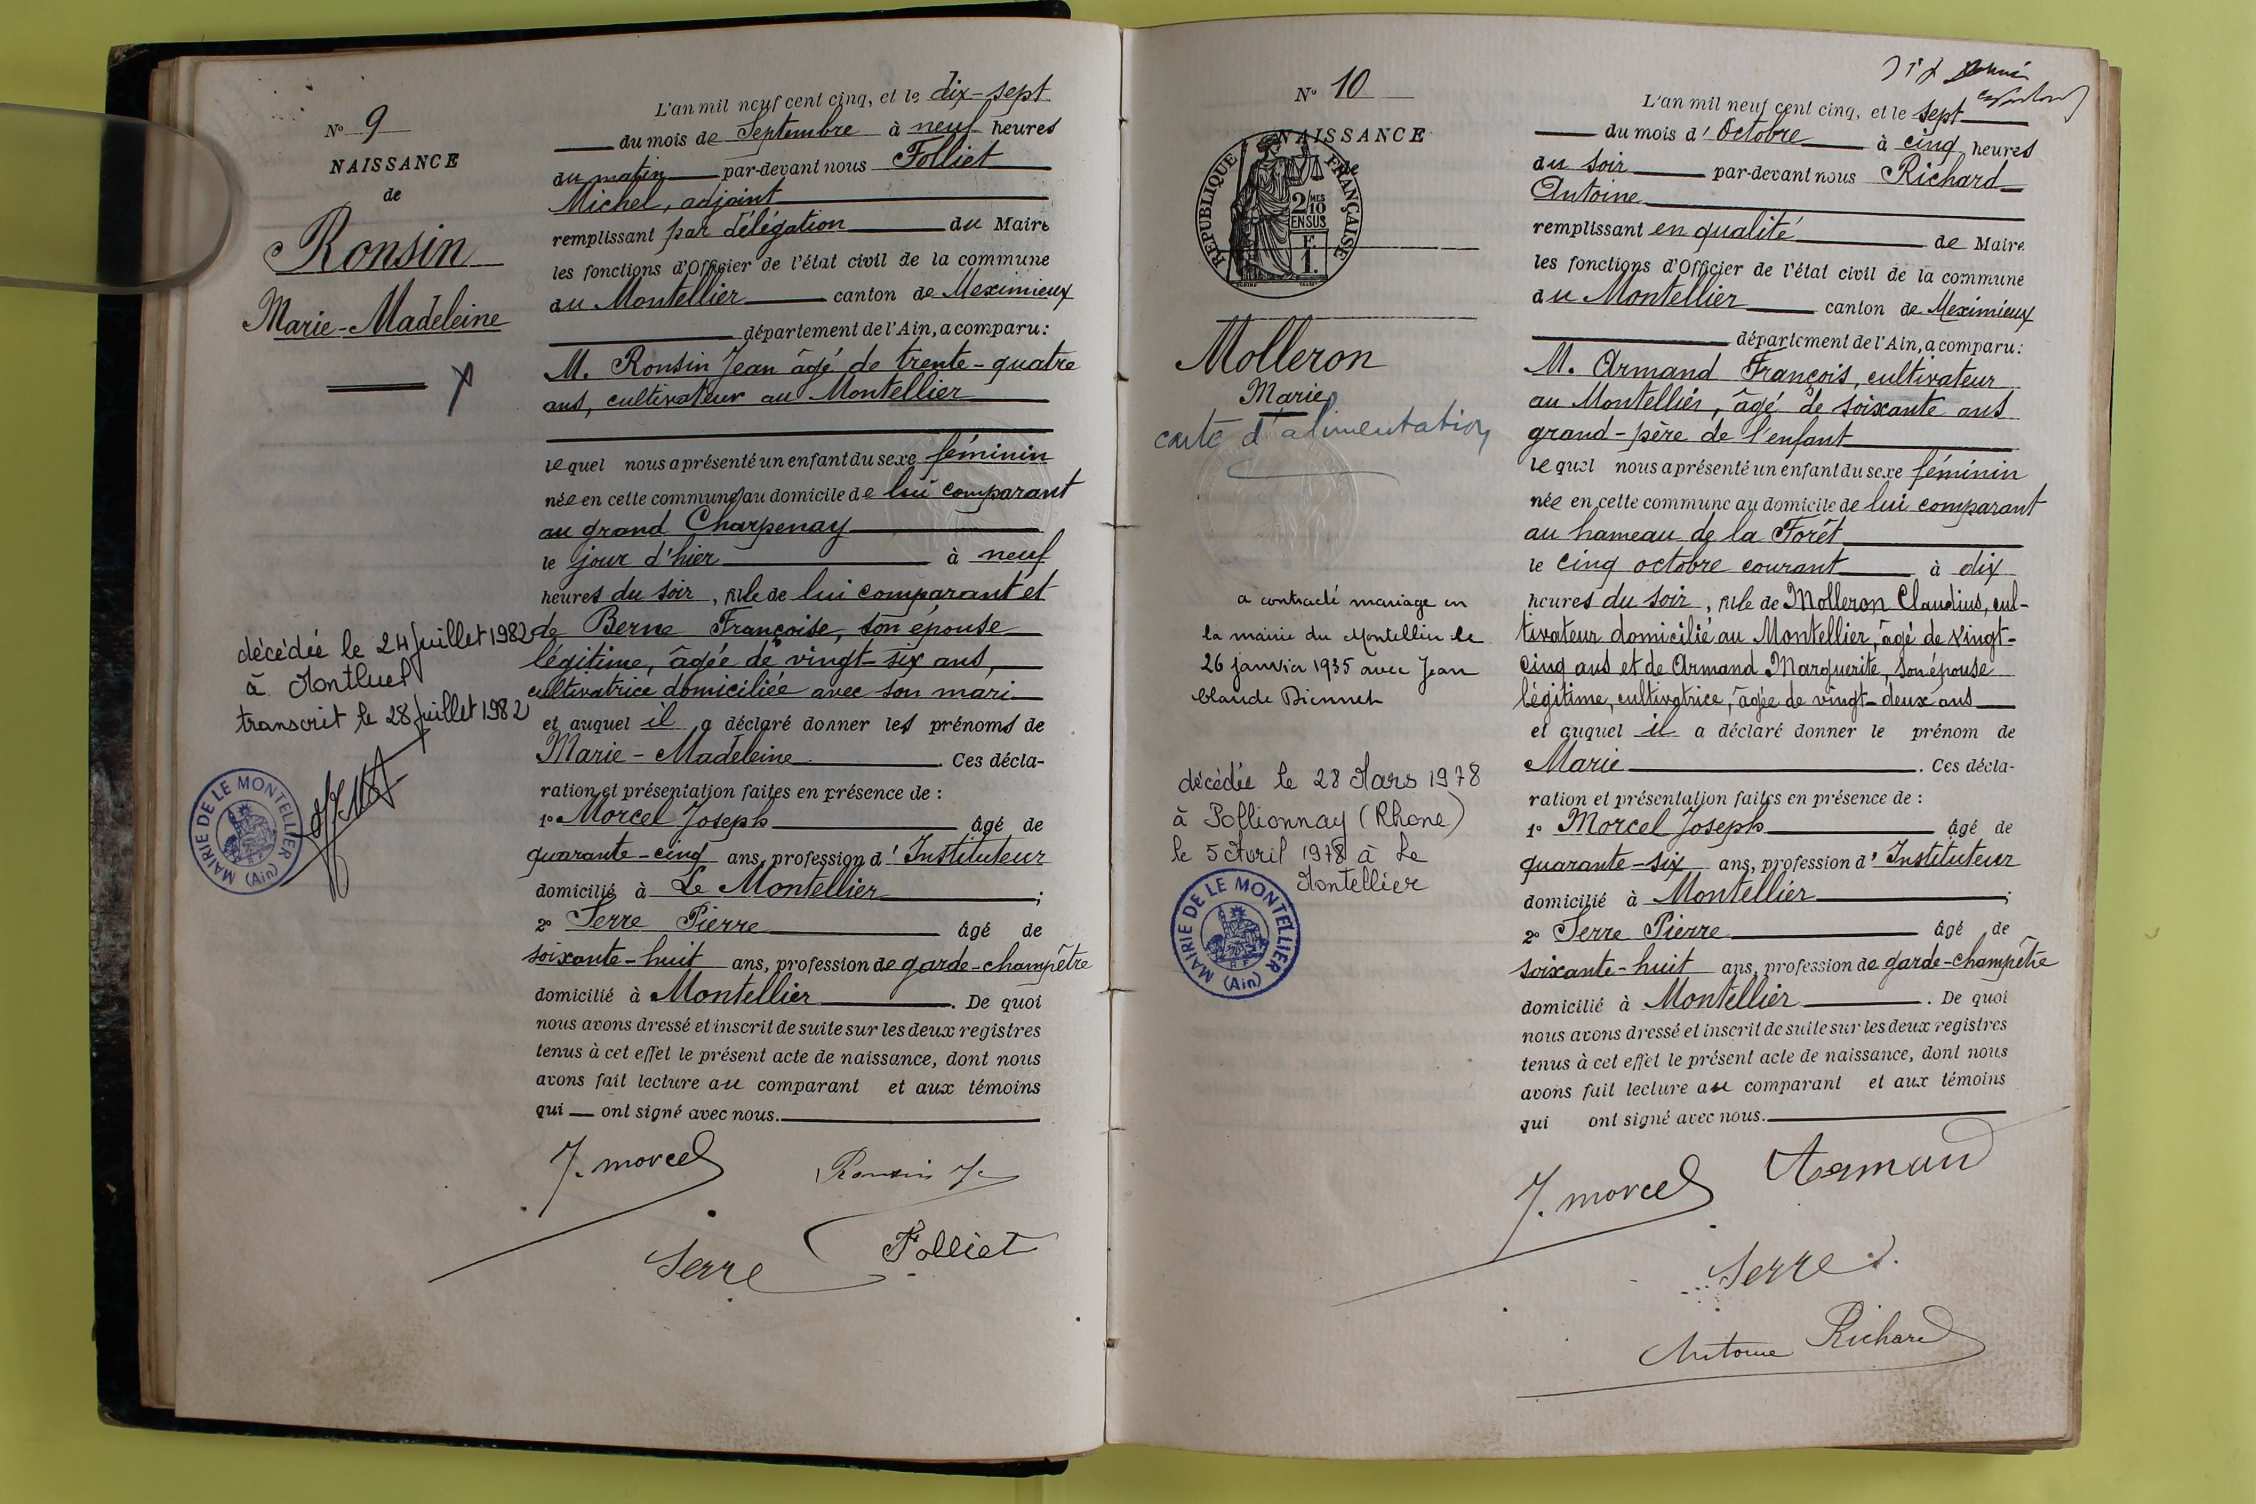 N° 9
NAISSANCE
de
Ronsin
Marie-Madeleine
décédée le 24 Juillet 1982
à Montluel
transcrit le 28 Juillet 1982
MAIRIE DE LE MONTELLIER
(Ain)
L'an mil neuf cent cinq, et le dix-sept
du mois de Septembre à neuf heures
du matin par-devant nous Folliet
Michel, adjoint
remplissant par délégation du Maire
les fonctions d'Officier de l'état civil de la commune
du Montellier canton de Meximieux
département de l'Ain, a comparu:
M. Ronsin Jean âgé de trente-quatre
ans, cultivateur au Montellier
lequel nous a présenté un enfant du sexe féminin
née en cette commune au domicile de lui comparant
au grand Charpenay
le jour d'hier à neuf
heures du soir, fille de lui comparant et
de Berne Françoise, son épouse
légitime, âgée de vingt-six ans,
cultivatrice domiciliée avec son mari
et auquel il a déclaré donner les prénoms de
Marie-Madeleine. Ces décla-
ration et présentation faites en présence de:
1° Morcel Joseph âgé de
quarante-cinq ans, profession d'Instituteur
domicilié à Le Montellier;
2° Serre Pierre âgé de
soixante-huit ans, profession de garde-champêtre
domicilié à Montellier. De quoi
nous avons dressé et inscrit de suite sur les deux registres
tenus à cet effet le présent acte de naissance, dont nous
avons fait lecture au comparant et aux témoins
qui — ont signé avec nous.
J. morcel Ronsin Je
Serre Folliet
N° 10
NAISSANCE
de
RÉPUBLIQUE FRANÇAISE
2/10 MES
EN SUS
F.
1.
Molleron
Marie
carte d'alimentation
a contracté mariage en
la mairie du Montellier le
26 janvier 1935 avec Jean
Claude Biennet
décédée le 28 Mars 1978
à Pollionnay (Rhone)
le 5 Avril 1978 à Le
Montellier
MAIRIE DE LE MONTELLIER
(Ain)
L'an mil neuf cent cinq, et le sept
du mois d'Octobre à cinq heures
du soir par-devant nous Richard
Antoine
remplissant en qualité de Maire
les fonctions d'Officier de l'état civil de la commune
du Montellier canton de Meximieux
département de l'Ain, a comparu:
M. Armand François, cultivateur
au Montellier, âgé de soixante ans
grand-père de l'enfant
lequel nous a présenté un enfant du sexe féminin
née en cette commune au domicile de lui comparant
au hameau de la Forêt
le cinq octobre courant à dix
heures du soir, fille de Molleron Claudius, cul-
tivateur domicilié au Montellier, âgé de vingt-
cinq ans et de Armand Marguerite, son épouse
légitime, cultivatrice, âgée de vingt-deux ans
et auquel il a déclaré donner le prénom de
Marie. Ces décla-
ration et présentation faites en présence de:
1° Morcel Joseph âgé de
quarante-six ans, profession d'Instituteur
domicilié à Montellier;
2° Serre Pierre âgé de
soixante-huit ans, profession de garde-champêtre
domicilié à Montellier. De quoi
nous avons dressé et inscrit de suite sur les deux registres
tenus à cet effet le présent acte de naissance, dont nous
avons fait lecture au comparant et aux témoins
qui ont signé avec nous.
J. morcel Armand
Serre
Antoine Richard